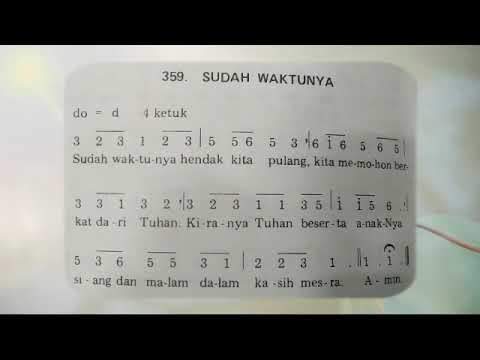 359. SUDAH WAKTUNYA
do = d 4 ketuk
3 2 3 1 2 3 | 5 5 6 5 3 ' 6 i 6 5 6 5 |
Sudah wak-tu-nya hendak kita pulang, kita me-mo-hon ber-
3 3 1 3 2 ' 3 2 3 1 1 3 5 | i i 5 6 .
kat da-ri Tuhan. Ki-ra-nya Tuhan beser-ta a-nak-Nya
5 3 6 5 5 3 1 | 2 2 3 1 . || 1 . i . ||
si-ang dan ma-lam da-lam ka-sih mes-ra. A-min.